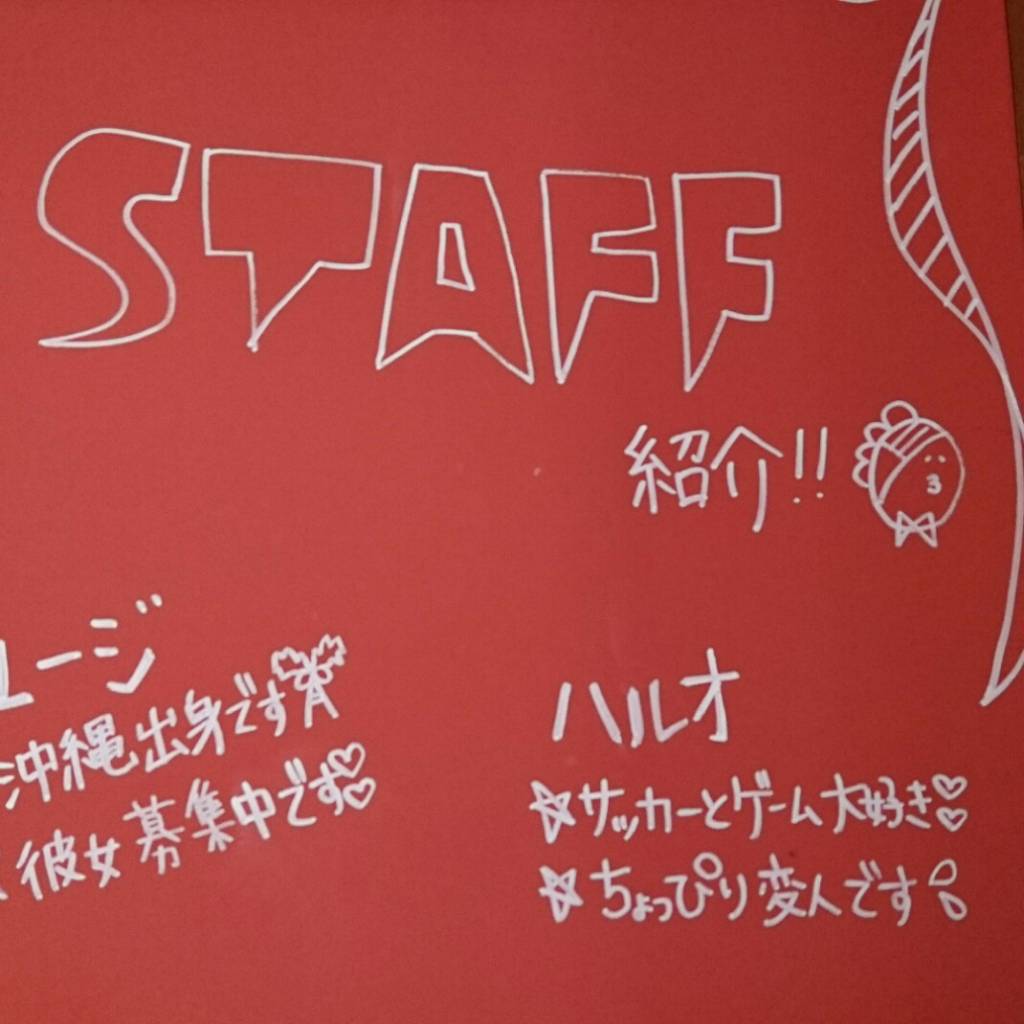 STAFF
紹介!!
ユージ
沖縄出身です
彼女募集中です
ハルオ
☆サッカーとゲーム大好き♡♡
☆ちょっぴり変人です